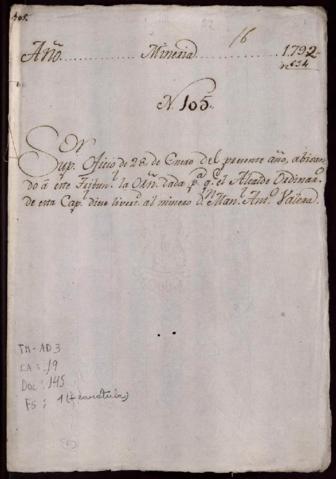 105.
16
Añ. Mineria 1792
nº 654
N. 105.
Sor
Sup. Oficio de 28 de Enero del presente año,
do á este Tribun.l la Orñ. dada p.a q.e el Alcalde Ordinar.o
de esta Cap.l diese livert.d al minero D.n Man.l Ant.o Valera.
TM-AD3
CA: 19
Doc: 145
Fs: 1 (+ caratula)